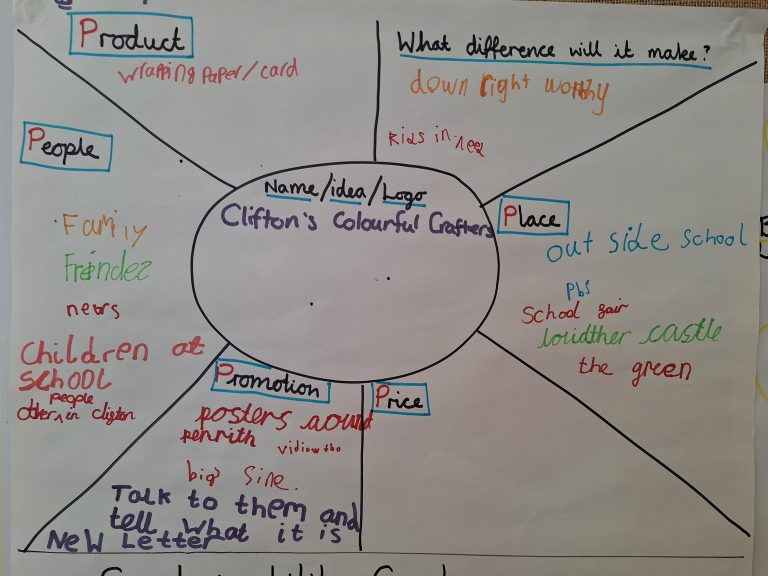 Product
wrapping paper/card
What difference will it make?
down right worthy
Kids in need
People
Family
Freindez
news
Children at
School
people
others in clifton
Name/idea/Logo
Clifton's Colourful Crafters
Place
out side school
pbs
School fair
lowther castle
the green
Promotion
posters aound
penrith
big sine.
Talk to them and
tell what it is
New Letter
Price